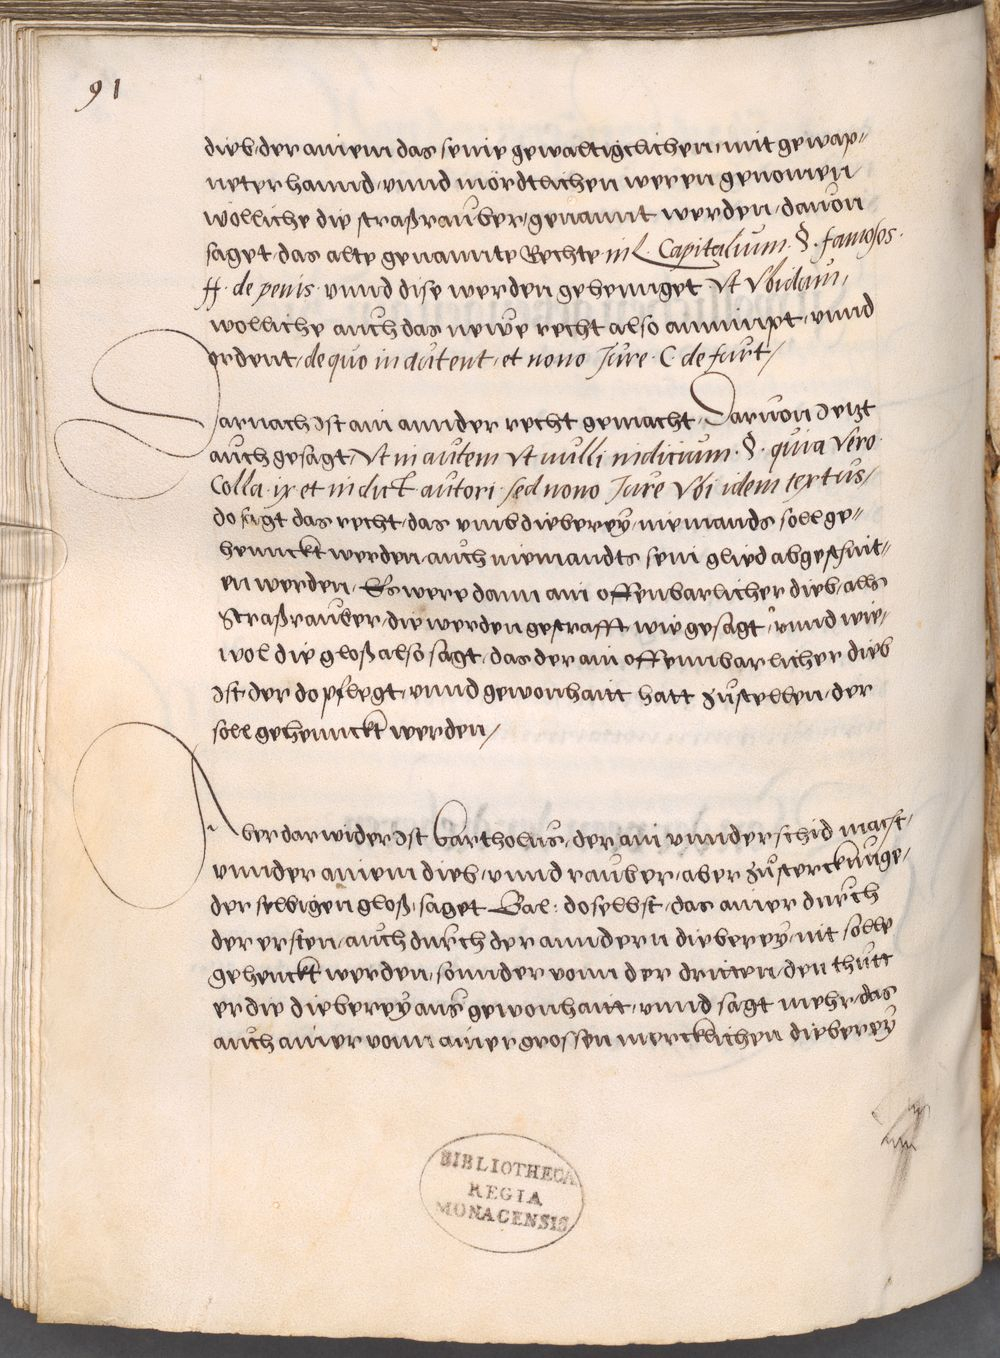 91
dieb, der ainem das seine gewaltigclichen, mit gewap=
neter hannd, vnnd mördtlichen weren genomen,
wölliche die straßrauber, genannt werden, dauon
saget, das alte genannte Rechte in L. Capitalium. §. famosos.
ff. de penis. vnnd dise werden gehennget vt vbidam,
wölliche auch das newe recht also annimpt, vnnd
ordent, de quo in autent, et nono Jure. C de furt,
Darnach Ist ain annder recht gemacht, Daruon Jetzt
auch gesagt, Vt in autem vt nulli iudicium. §. quia vero.
Colla. ix et in dict autori. sed nono Jure vbi idem textus,
do sagt das recht, das vmb dieberey, niemands soll ge=
hennckt werden, auch niemandts sein glied abgeschnit=
en werden, Es were dann ain offenbarlicher dieb, alls
Straßrauber, die werden gestrafft wie gesagt, vnnd wie,
wol die gloß also sagt, das der ain offennbarlicher dieb
Ist, der do pflegt, vnnd gewonhait hatt zustellen, der
soll gehennckt werden,
Aber darwider Ist Bartholus, der ain vnnderschid macht,
vnnder ainem dieb, vnnd rauber, aber zu sterckunge,
der selbigen gloß, saget Bal: doselbst, das ainer durch
der ersten, auch durch der anndern dieberey, nit solle
gehenckt werden, sonnder vonn der dritten, den thutt
er die dieberey aus gewonhait, vnnd sagt mehr, das
auch ainer vonn ainer grossen mercklichen dieberey
BIBLIOTHECA
REGIA
MONACENSIS